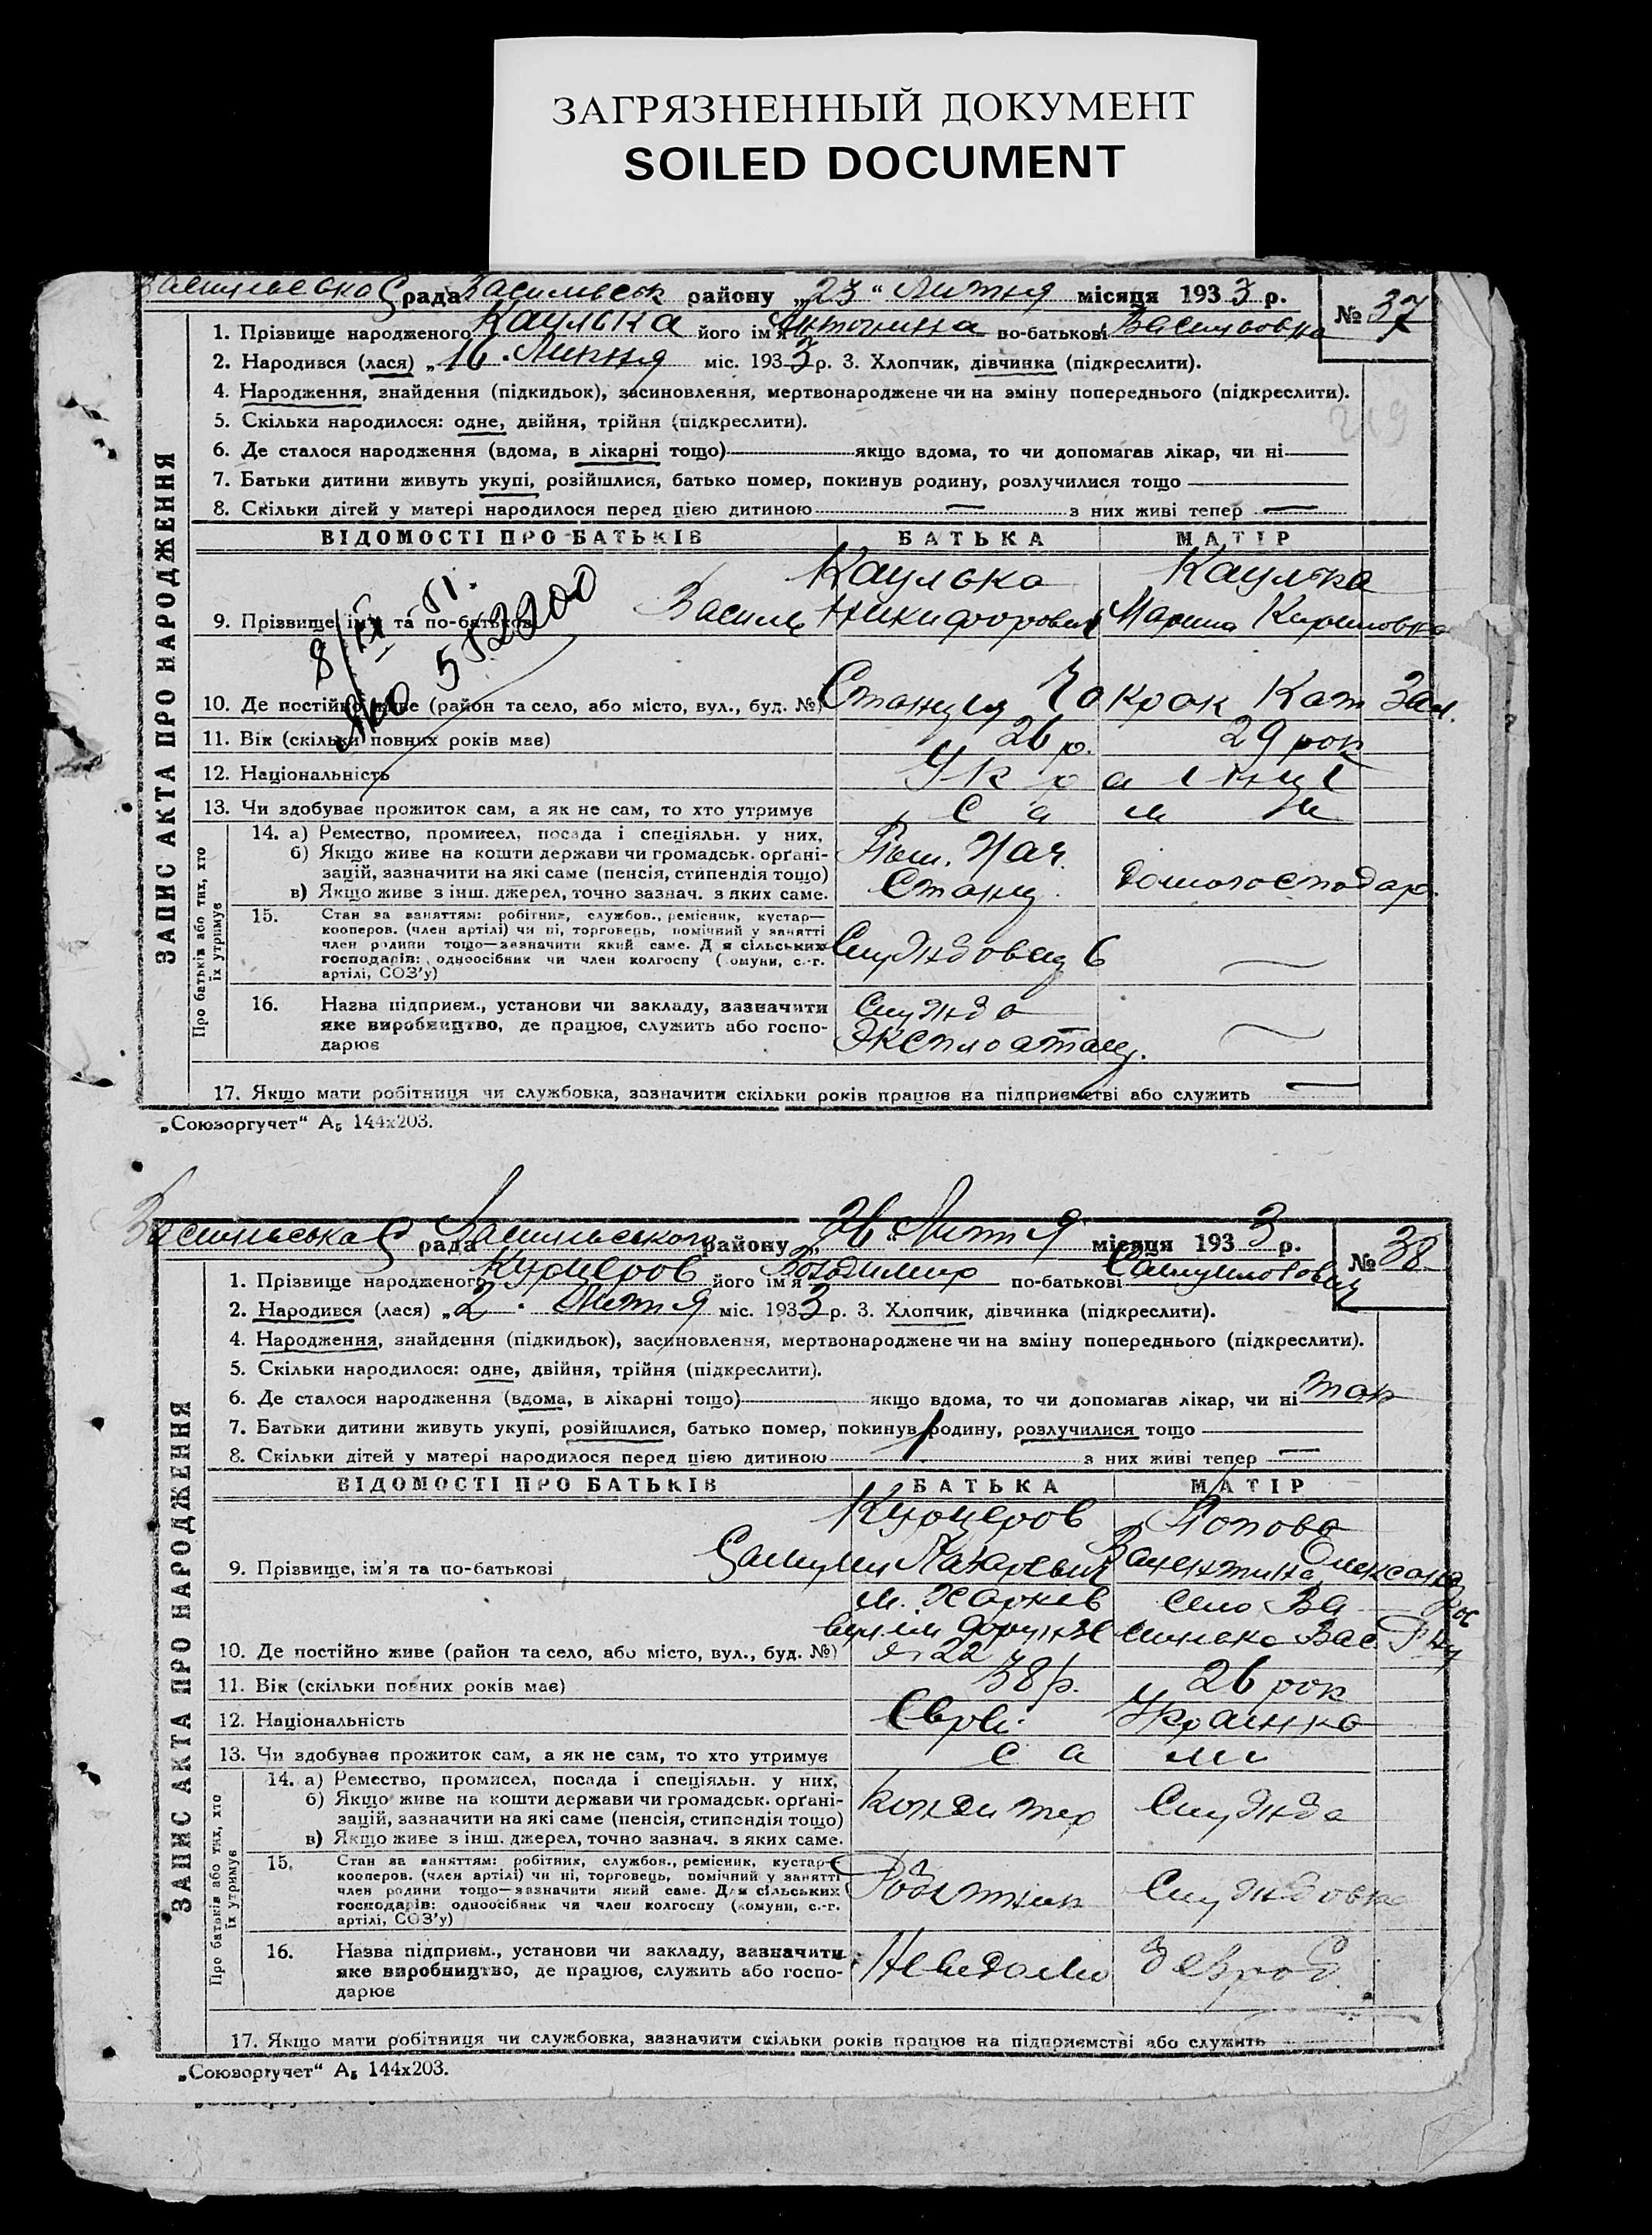 ЗАГРЯЗНЕННЫЙ ДОКУМЕНТ
SOILED DOCUMENT
рада Васильевск району „23“ Лютня місяця 1933 р. № 37
1. Прізвище народженого Каулька його ім'я Антонина по-батькові Василовна
2. Народився (лася) „16 . міс. 1933 р. 3. Хлопчик, дівчинка (підкреслити).
4. Народження, знайдення (підкидьок), засиновлення, мертвонароджене чи на зміну попереднього (підкреслити).
5. Скільки народилося: одне, двійня, трійня (підкреслити).
6. Де сталося народження (вдома, в лікарні тощо) якщо вдома, то чи допомагав лікар, чи ні
7. Батьки дитини живуть укупі, розійшлися, батько помер, покинув родину, розлучилися тощо
8. Скільки дітей у матері народилося перед цією дитиною — з них живі тепер —
ЗАПИС АКТА ПРО НАРОДЖЕННЯ
ВІДОМОСТІ ПРО БАТЬКІВ БАТЬКА МАТІР
Каулька Каулька
9. Прізвище, ім'я та по-батькові Василь Никифорович Марина Кириловна
10. Де постійно живе (район та село, або місто, вул., буд. №) Станція Чокрак Кат Зал.
11. Вік (скільки повних років має) 26 р. 29 рок
12. Національність Украінці
13. Чи здобуває прожиток сам, а як не сам, то хто утримує сами
Про батьків або тих, хто їх утримує
14. а) Ремество, промисел, посада і спеціяльн. у них,
б) Якщо живе на кошти держави чи громадськ. орґані-
зацій, зазначити на які саме (пенсія, стипендія тощо)
в) Якщо живе з інш. джерел, точно зазнач. з яких саме.
Пом. Нач.
Станц. домогосподар.
15. Стан за заняттям: робітник, службов., ремісник, кустар—
кооперов. (член артілі) чи ні, торговець, помічний у занятті
член родини тощо—зазначити який саме. Для сільських
господарів: одноосібник чи член колгоспу (комуни, с.-г.
артілі, СОЗ'у)
Службовец —
16. Назва підприєм., установи чи закладу, зазначити
яке виробництво, де працює, служить або госпо-
дарює
Служба
Эксплоатац. —
17. Якщо мати робітниця чи службовка, зазначити скільки років працює на підприємстві або служить —
„Союзоргучет“ А₅ 144х203.
Васильська С рада Васильського району „26 Лютня місяця 1933 р. № 38
1. Прізвище народженого Курцеров його ім'я Володимир по-батькові Самуилович
2. Народився (лася) „2 . Лютня міс. 1933 р. 3. Хлопчик, дівчинка (підкреслити).
4. Народження, знайдення (підкидьок), засиновлення, мертвонароджене чи на зміну попереднього (підкреслити).
5. Скільки народилося: одне, двійня, трійня (підкреслити).
6. Де сталося народження (вдома, в лікарні тощо) якщо вдома, то чи допомагав лікар, чи ні так
7. Батьки дитини живуть укупі, розійшлися, батько помер, покинув родину, розлучилися тощо
8. Скільки дітей у матері народилося перед цією дитиною 1 з них живі тепер —
ЗАПИС АКТА ПРО НАРОДЖЕННЯ
ВІДОМОСТІ ПРО БАТЬКІВ БАТЬКА МАТІР
Курцеров Попова
9. Прізвище, ім'я та по-батькові Самуил Лазаревич Валентина
м. Харків село Ва
10. Де постійно живе (район та село, або місто, вул., буд. №) № 22
11. Вік (скільки повних років має) 38 р. 26 рок
12. Національність Еврей Украінка
13. Чи здобуває прожиток сам, а як не сам, то хто утримує сами
Про батьків або тих, хто їх утримує
14. а) Ремество, промисел, посада і спеціяльн. у них,
б) Якщо живе на кошти держави чи громадськ. орґані-
зацій, зазначити на які саме (пенсія, стипендія тощо)
в) Якщо живе з інш. джерел, точно зазнач. з яких саме.
кондитер Служба
15. Стан за заняттям: робітник, службов., ремісник, кустар—
кооперов. (член артілі) чи ні, торговець, помічний у занятті
член родини тощо—зазначити який саме. Для сільських
господарів: одноосібник чи член колгоспу (комуни, с.-г.
артілі, СОЗ'у)
Робітник Службовка
16. Назва підприєм., установи чи закладу, зазначити
яке виробництво, де працює, служить або госпо-
дарює
Невідомо
17. Якщо мати робітниця чи службовка, зазначити скільки років працює на підприємстві або служить
„Союзоргучет“ А₅ 144х203.